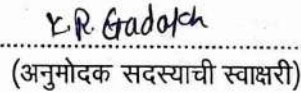 Y.R. Gadakh
(अनुमोदक सदस्याची स्वाक्षरी)